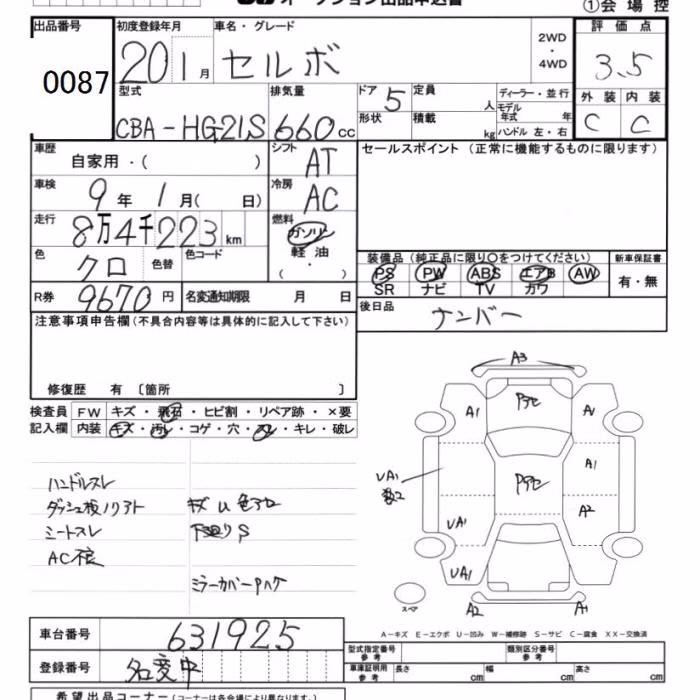 オークション出品申込書
①会場控
出品番号 初度登録年月 車名・グレード 2WD・4WD 評価点
0087 20 1月 セルボ 3.5
型式 排気量 ドア 5 定員 人 ディーラー・並行 外装 内装
CBA-HG21S 660cc 形状 積載 kg モデル年式 年 ハンドル 左・右 C C
車歴 自家用・( ) シフト AT セールスポイント (正常に機能するものに限ります)
車検 9年 1月( 日) 冷房 AC
走行 8万4千223km 燃料 ガソリン・軽油・( )
色 クロ 色替 色コード
装備品 (純正品に限り○をつけてください) 新車保証書
PS PW ABS エアB AW 有・無
SR ナビ TV カワ
R券 9670円 名変通知期限 月 日
後日品 ナンバー
注意事項申告欄(不具合内容等は具体的に記入して下さい)
修復歴 有 〔箇所 〕
検査員 FW キズ・飛石・ヒビ割・リペア跡・×要
記入欄 内装 キズ・汚レ・コゲ・穴・スレ・キレ・破レ
ハンドルスレ
ダッシュ板ノリアト キズU色アセ
シートスレ 下廻りS
AC不良
ミラーカバーPハゲ
A3
A1 Pアセ
UA1 Pアセ A1
A2
UA1
UA1
スペア A2 A1
A-キズ E-エクボ U-凹み W-補修跡 S-サビ C-腐食 XX-交換済
車台番号 631925
型式指定番号 参考 類別区分番号 参考
登録番号 名変中
車庫証明用 参考 長さ cm 幅 cm 高さ cm
希望出品コーナー (コーナーは各会場により異なります)